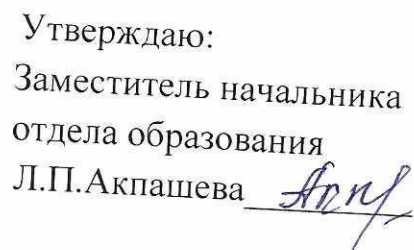 Утверждаю:
Заместитель начальника
отдела образования
Л.П.Акпашева